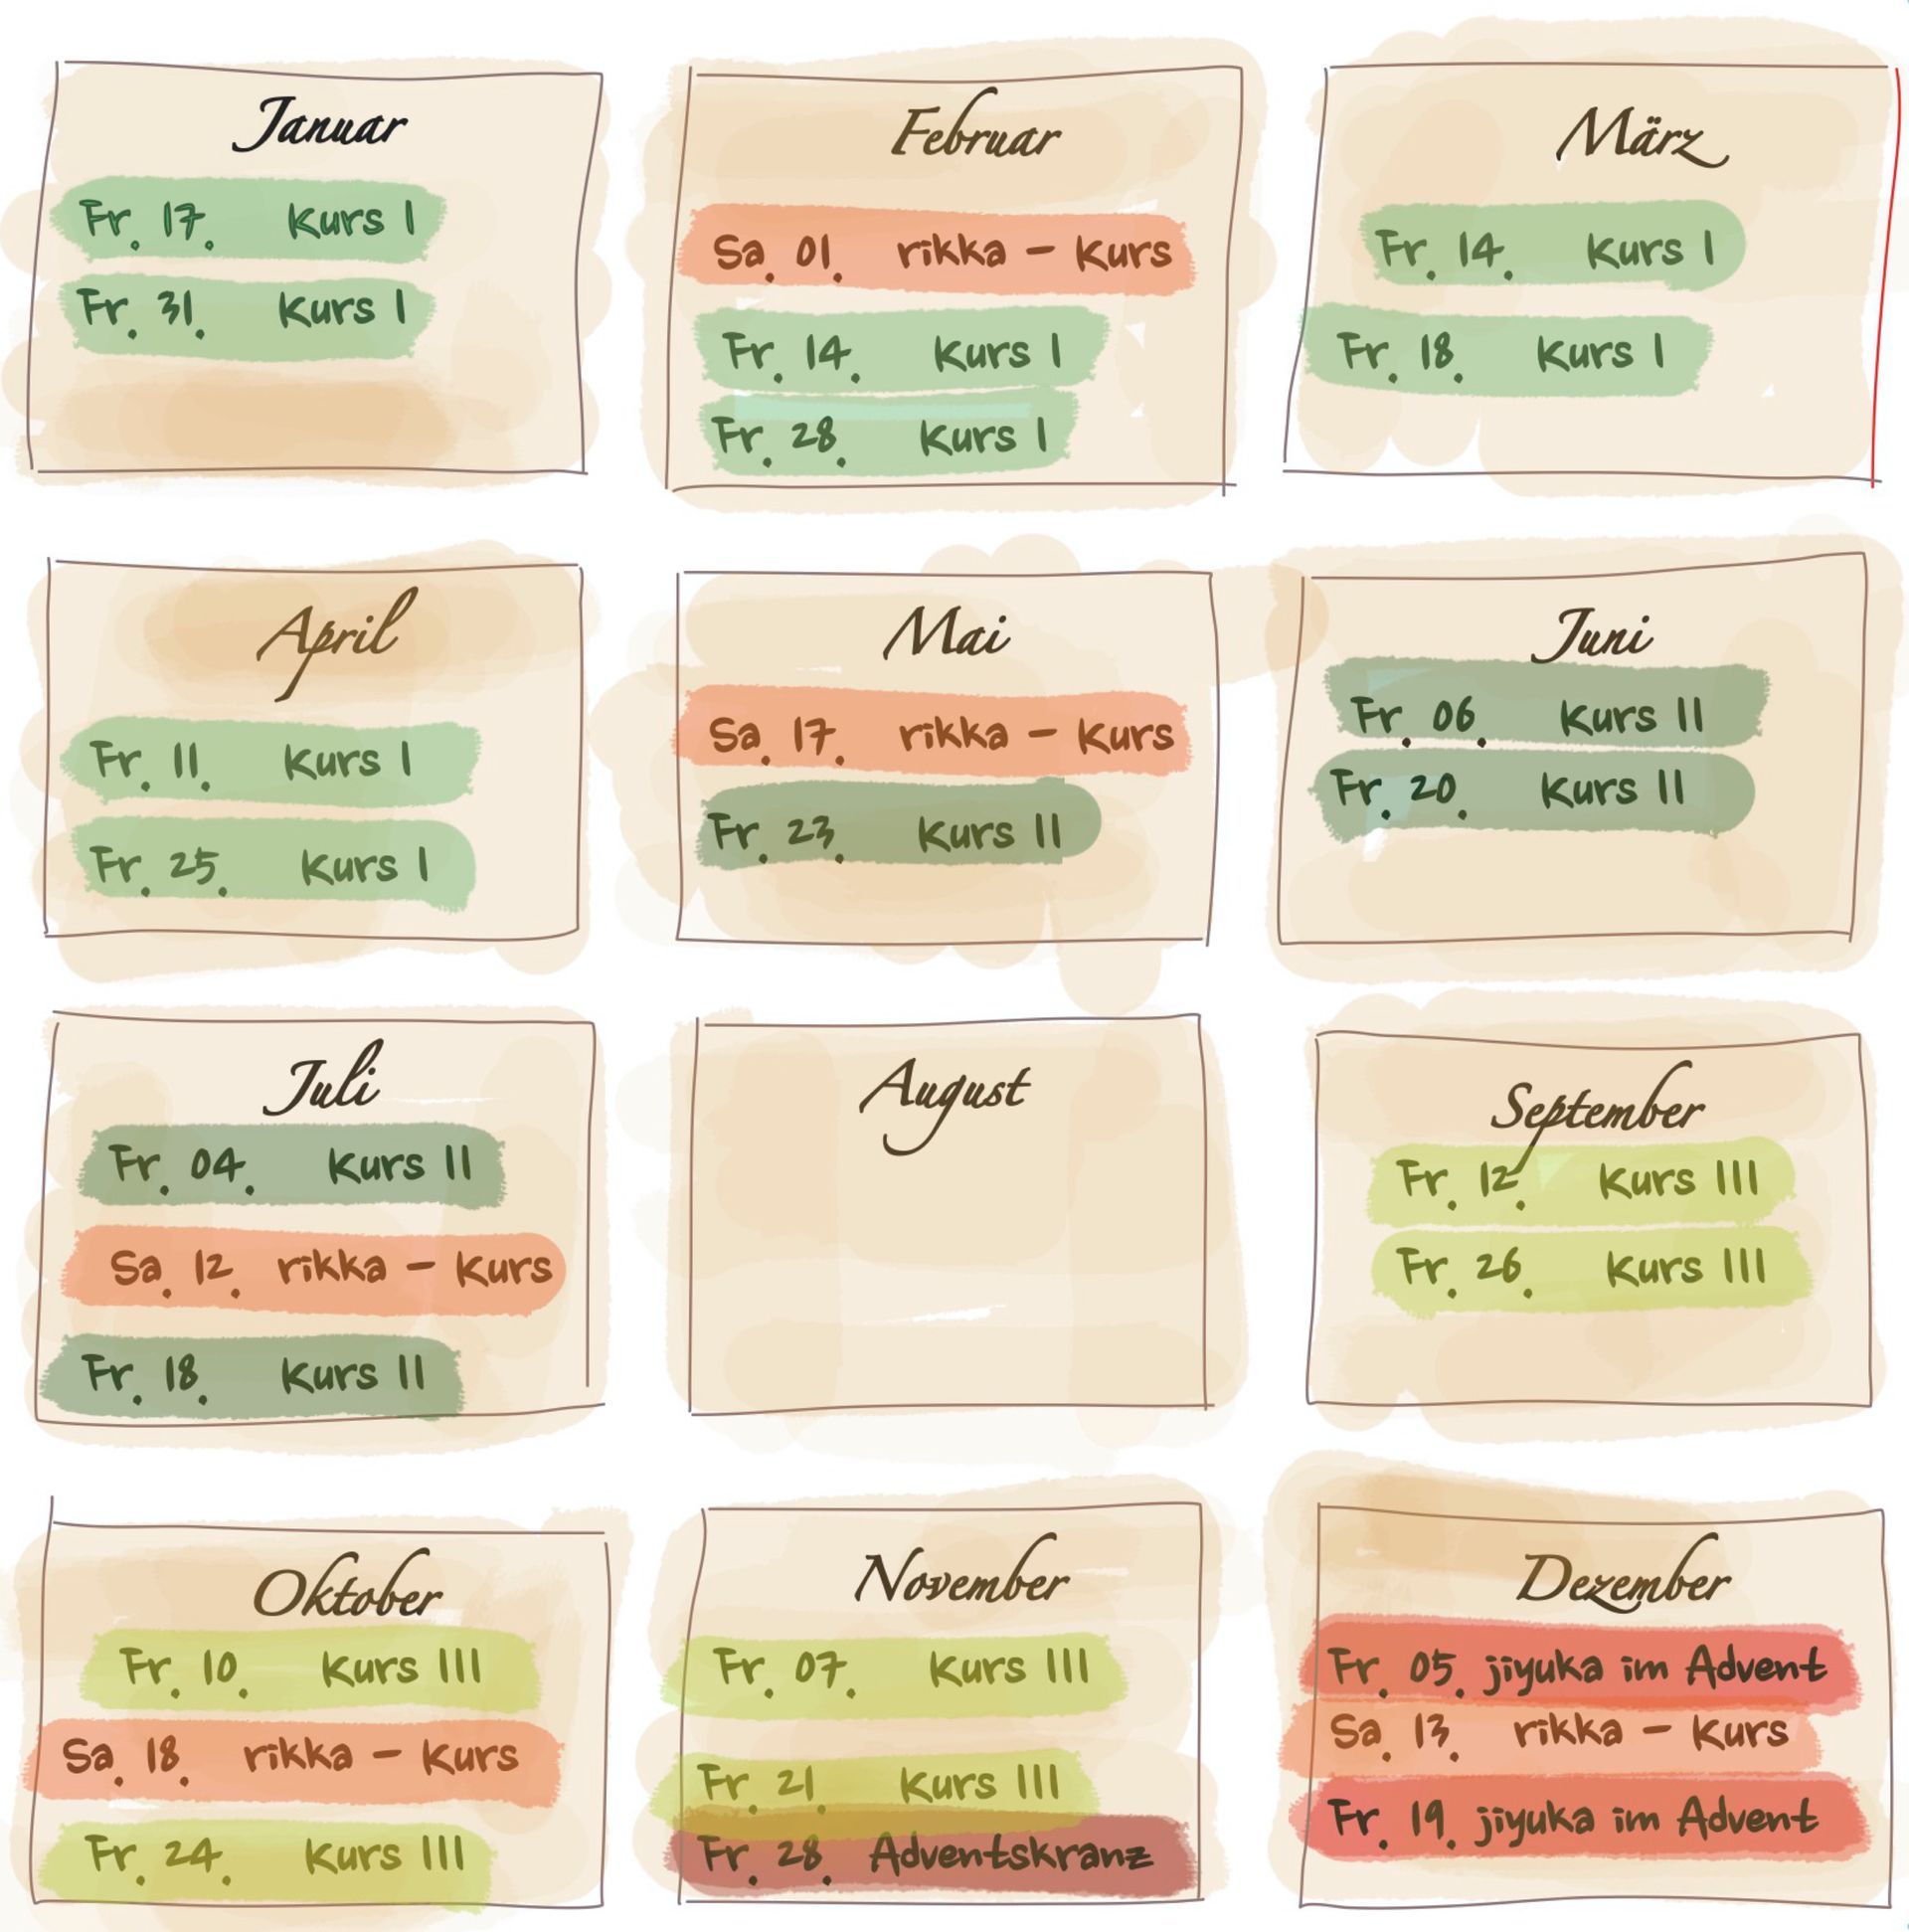 Januar
Fr. 17. Kurs I
Fr. 31. Kurs I
Februar
Sa. 01. rikka - Kurs
Fr. 14. Kurs I
Fr. 28. Kurs I
März
Fr. 14. Kurs I
Fr. 18. Kurs I
April
Fr. 11. Kurs I
Fr. 25. Kurs I
Mai
Sa. 17. rikka - Kurs
Fr. 23. Kurs II
Juni
Fr. 06. Kurs II
Fr. 20. Kurs II
Juli
Fr. 04. Kurs II
Sa. 12. rikka - Kurs
Fr. 18. Kurs II
August
September
Fr. 12. Kurs III
Fr. 26. Kurs III
Oktober
Fr. 10. Kurs III
Sa. 18. rikka - Kurs
Fr. 24. Kurs III
November
Fr. 07. Kurs III
Fr. 21. Kurs III
Fr. 28. Adventskranz
Dezember
Fr. 05. jiyuka im Advent
Sa. 13. rikka - Kurs
Fr. 19. jiyuka im Advent